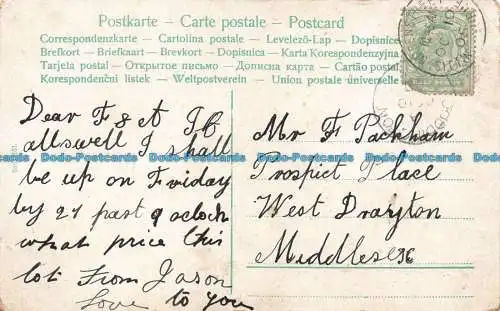 Postkarte - Carte postale - Postcard
Correspondenzkarte - Cartolina postale - Levelező-Lap - Dopisnice
Brefkort - Briefkaart - Brevkort - Dopisnica - Karta Korespondenzyjna
Tarjeta postal - Открытое письмо - Дописна карта - Cartão postal
Korespondenční listek - Weltpostverein - Union postale universelle
Dear F & A If
alls well I shall
be up on Friday
by 27 past 9 oclock
what price this
lot From Jason
love to you
Mr F Packham
Prospict Place
West Drayton
Middlesex
Dodo-Postcards Dodo-Postcards Dodo-Postcards Dodo-Postcards